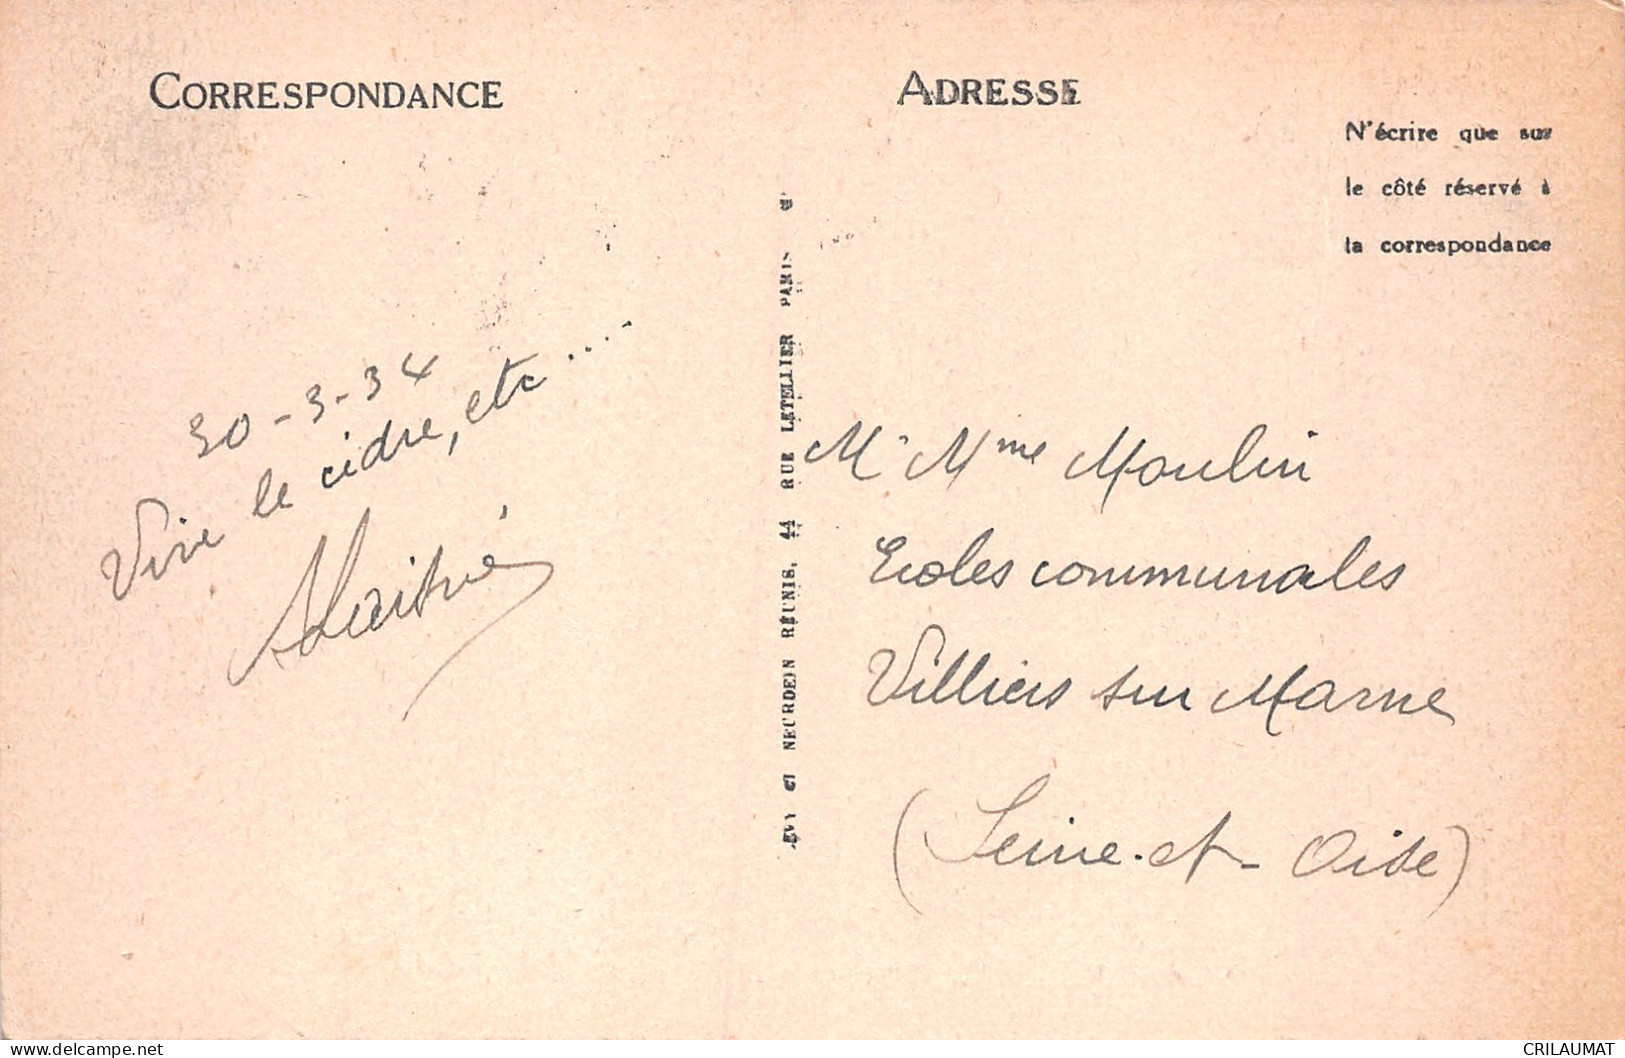 CORRESPONDANCE
ADRESSE
N'écrire que sur
le côté réservé à
la correspondance
30-3-34
Vive le cidre, etc.....
NEURDEIN RÉUNIS, 44 RUE LETELLIER PARIS
Mr Mme Moulin
Ecoles communales
Villiers sur Marne
(Seine-et-Oise)
CRILAUMAT
delcampe.net